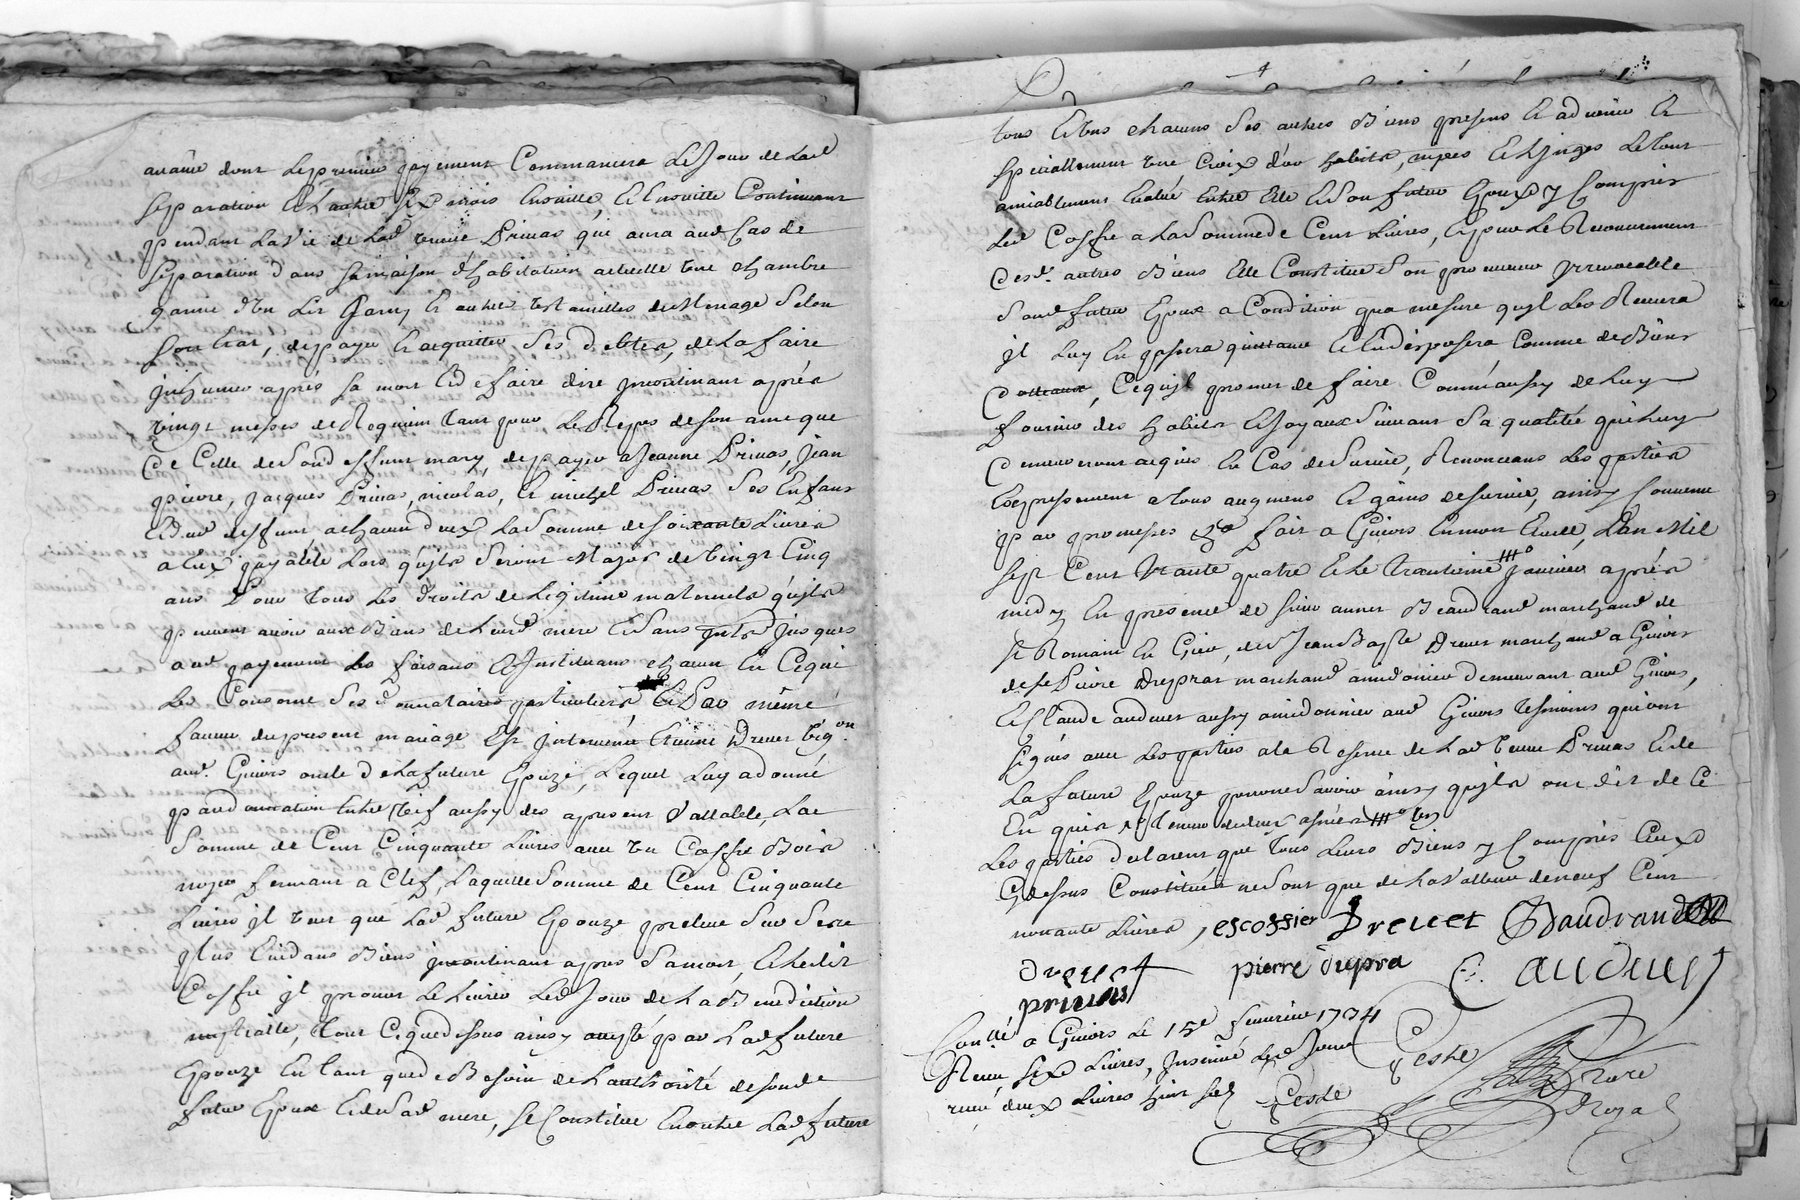 avance dont le premier payement Commancera Le Jour de Lad
separation Et Lautre six mois Ensuitte, Et Ensuitte Continuant
pendant La vie de Lad veuve Primas qui aura aud Cas de
separation dans sa maison d'habitation actuelle une chambre
garnie d'un Lit Garny Et autres ustancilles de Menage selon
son Etat, de payer Et acquitter ses debtes, de La faire
jnhumer après sa mort Et de faire dire jncontinant après
vingt messes de Requiem tant pour Le Repos de son ame que
Ce Celle de soud deffunt mary, de payer a Jeanne Primas, Jean
pierre, Jacques Primas, nicolas, Et michel Primas ses Enfans
Et dud deffunt a chacun d'eux La somme de soixante Livres
a Eux payable Lors qu'ils seront Major de vingt Cinq
ans Pour tous Les droits de Legitime maternels qu'ils
peuvent avoir aux Biens de Leurd mere Et sans jnterets jusques
aud payement Les faisans Et Jnstituans chacun En Ce qui
Les Concerne ses donnataires particuliers, Et Par même
faveur du present mariage Est jntervenu Drevet vig.on
aud. Givors oncle de La future Epouze, Lequel Luy a donné
par donnation Entre vifs aussy des apresent vallable, La
somme de Cent Cinquante Livres avec un Coffre Bois
noyer fermant a Clef, Laquelle somme de Cent Cinquante
Livres jl veut que Lad future Epouze preleve sur ses
plus Clairs Biens jncontinant apres sa mort, Et Led
Coffre jl promet Le Livrer Led Jour de La Benediction
nuptialle, tout Ce que dessus ainsy accepté par Lad future
Epouze En tant que de Besoin de L'authorité de sond
futur Epoux Et de sad mere, se Constitue Enoutre Lad future
tous Et uns chacuns ses autres Biens presens Et advenir Et
speciallement une Croix d'or habits, nipes Et Linges Le tout
amiablement Evalué Entre Elle Et son futur Epoux y Compris
Led Coffre a La somme de Cent Livres, Et pour Le Recouvrement
desd. autres Biens Elle Constitue son procureur jrrevocable
sond futur Epoux a Condition qua mesure qu'jl Les Recevra
jl Luy En passera quittance Et En disposera Comme de Biens
Dottaux, Ce qu'jl promet de faire Comm'aussy de Luy
fournir des habits Et Joyaux suivant sa qualitée qui Luy
demeureront acquis En Cas de survie, Renonceans Les parties
Expressement a tous augmens Et gains de survie, ainsy Convenu
par promesses &a fait a Givors En mon Etude, L'an Mil
sept Cent trante quatre Et Le trantieme Janvier après
midy En presence de sieur annet Beaudrand marchand de
st Romain En Gier, de sr Jean Bapte Drevet marchand a Givors
de sr Pierre Duprat marchand amidonier demeurant aud Givors,
Et Claude auduer aussy amidonnier aud Givors tesmoins qui ont
signés avec Les parties a la Reserve de Lad veuve Primas Et de
La future Epouze pour ne sçavoir ainsy qu'jls ont dit de Ce
Enquis
Les parties declarent que tous Leurs Biens y Compris Ceux
Cydessus Constitués ne sont que de La valleur de neuf Cent
nonante Livres, escossier Drevet Baudrand
drevet pierre dupra C. auduer
primas
Con.llé a Givors Le 15e fevrier 1734
Receu six Livres, Jnsinué Led Jour
receu deux Livres huit sols Peste
Peste
Nore
Royal